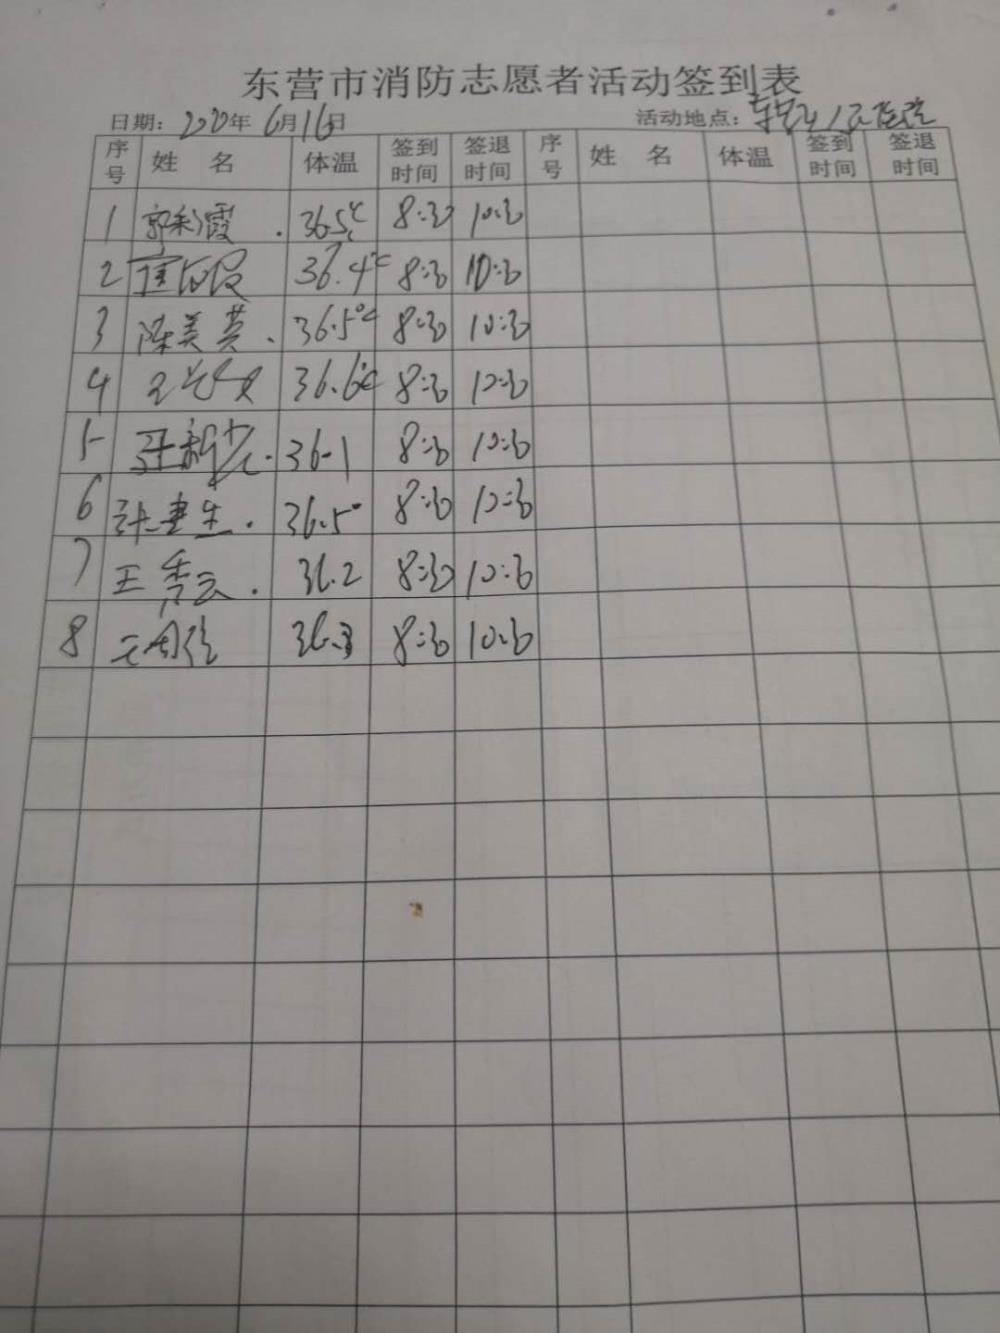 东营市消防志愿者活动签到表
日期: 2020年 6月16日 活动地点: 东营市人民医院
序号 姓 名 体温 签到时间 签退时间 序号 姓 名 体温 签到时间 签退时间
1 郭彩霞 36.5℃ 8:30 10:30
2 36.4℃ 8:30 10:30
3 陈美英 36.5℃ 8:30 10:30
4 36.6℃ 8:30 10:30
5 36.1 8:30 10:30
6 36.5° 8:30 10:30
7 王秀云 36.2 8:30 10:30
8 36.3 8:30 10:30